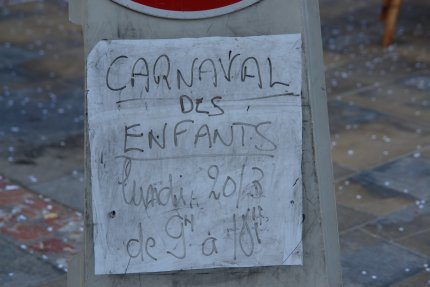 CARNAVAL
DES
ENFANTS
lundi 20/3
de 9h à 18h